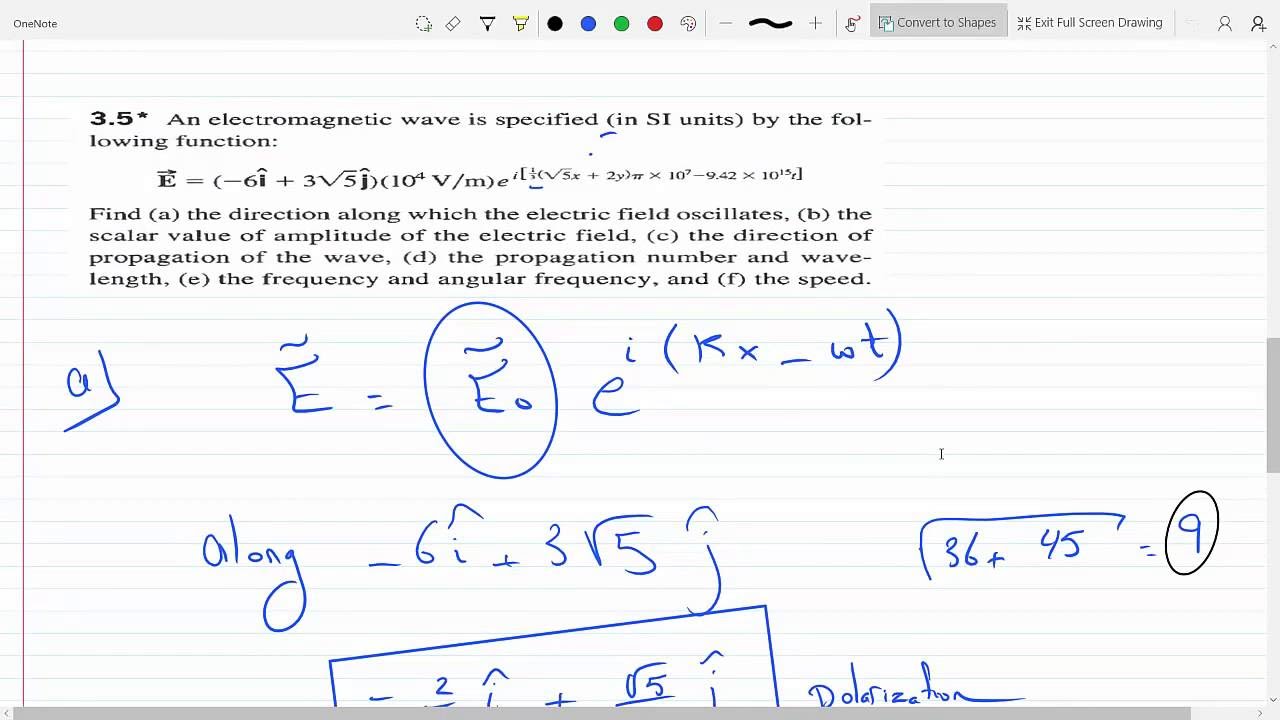 OneNote
Convert to Shapes
Exit Full Screen Drawing
3.5* An electromagnetic wave is specified (in SI units) by the fol-
lowing function:
E⃗ = (−6î + 3√5ĵ)(10⁴ V/m)e^{i[⅓(√5x + 2y)π × 10⁷−9.42 × 10¹⁵t]}
Find (a) the direction along which the electric field oscillates, (b) the
scalar value of amplitude of the electric field, (c) the direction of
propagation of the wave, (d) the propagation number and wave-
length, (e) the frequency and angular frequency, and (f) the speed.
a) Ẽ = Ẽ₀ e^{i(Kx − ωt)}
along −6î + 3√5 ĵ
√36+45 = 9
− 2 î + √5 ĵ Polarization